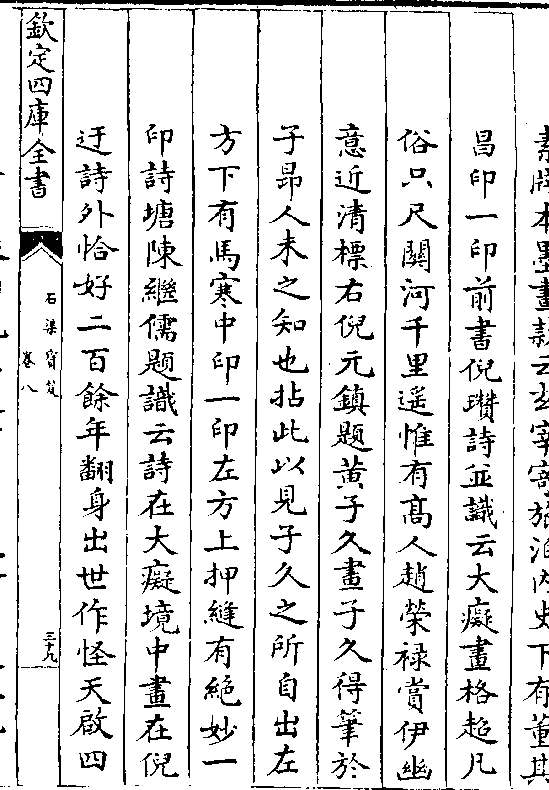 素牋本墨畫款云玄宰寫於泊內史下有董其
昌印一印前書倪瓚詩並識云大癡畫格超凡
俗只尺關河千里遥惟有髙人趙榮禄賞伊幽
意近清標右倪元鎮題黃子久畫子久得筆於
子昂人未之知也拈此以見子久之所自出左
方下有馬寒中印一印左方上押縫有絶妙一
印詩塘陳繼儒題識云詩在大癡境中畫在倪
迂詩外恰好二百餘年翻身出世作怪天啟四
欽定四庫全書
石渠寳笈
卷八
三十九